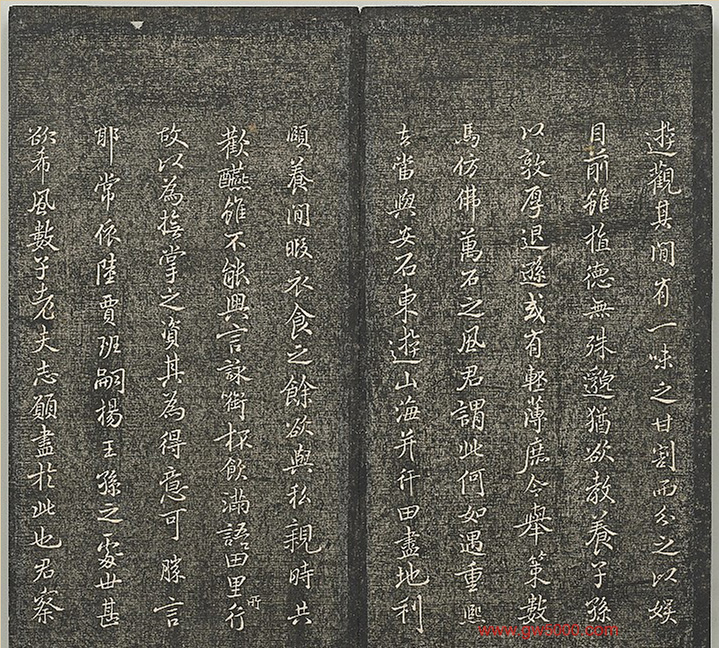 遊觀其間有一味之甘割而分之以娛
目前雖植德無殊邈猶欲教養子孫
以敦厚退遜或有輕薄庶令舉策數
馬仿佛萬石之風君謂此何如遇重熙
去當與安石東遊山海并行田盡地利
頤養閒暇衣食之餘欲與私親時共
歡讌雖不能興言詠銜杯飲滿語田里行
所
故以為撫掌之資其為得意可勝言
耶常依陸賈班嗣楊王孫之處世甚
欲希風數子老夫志願盡於此也君察
www.gw5000.com